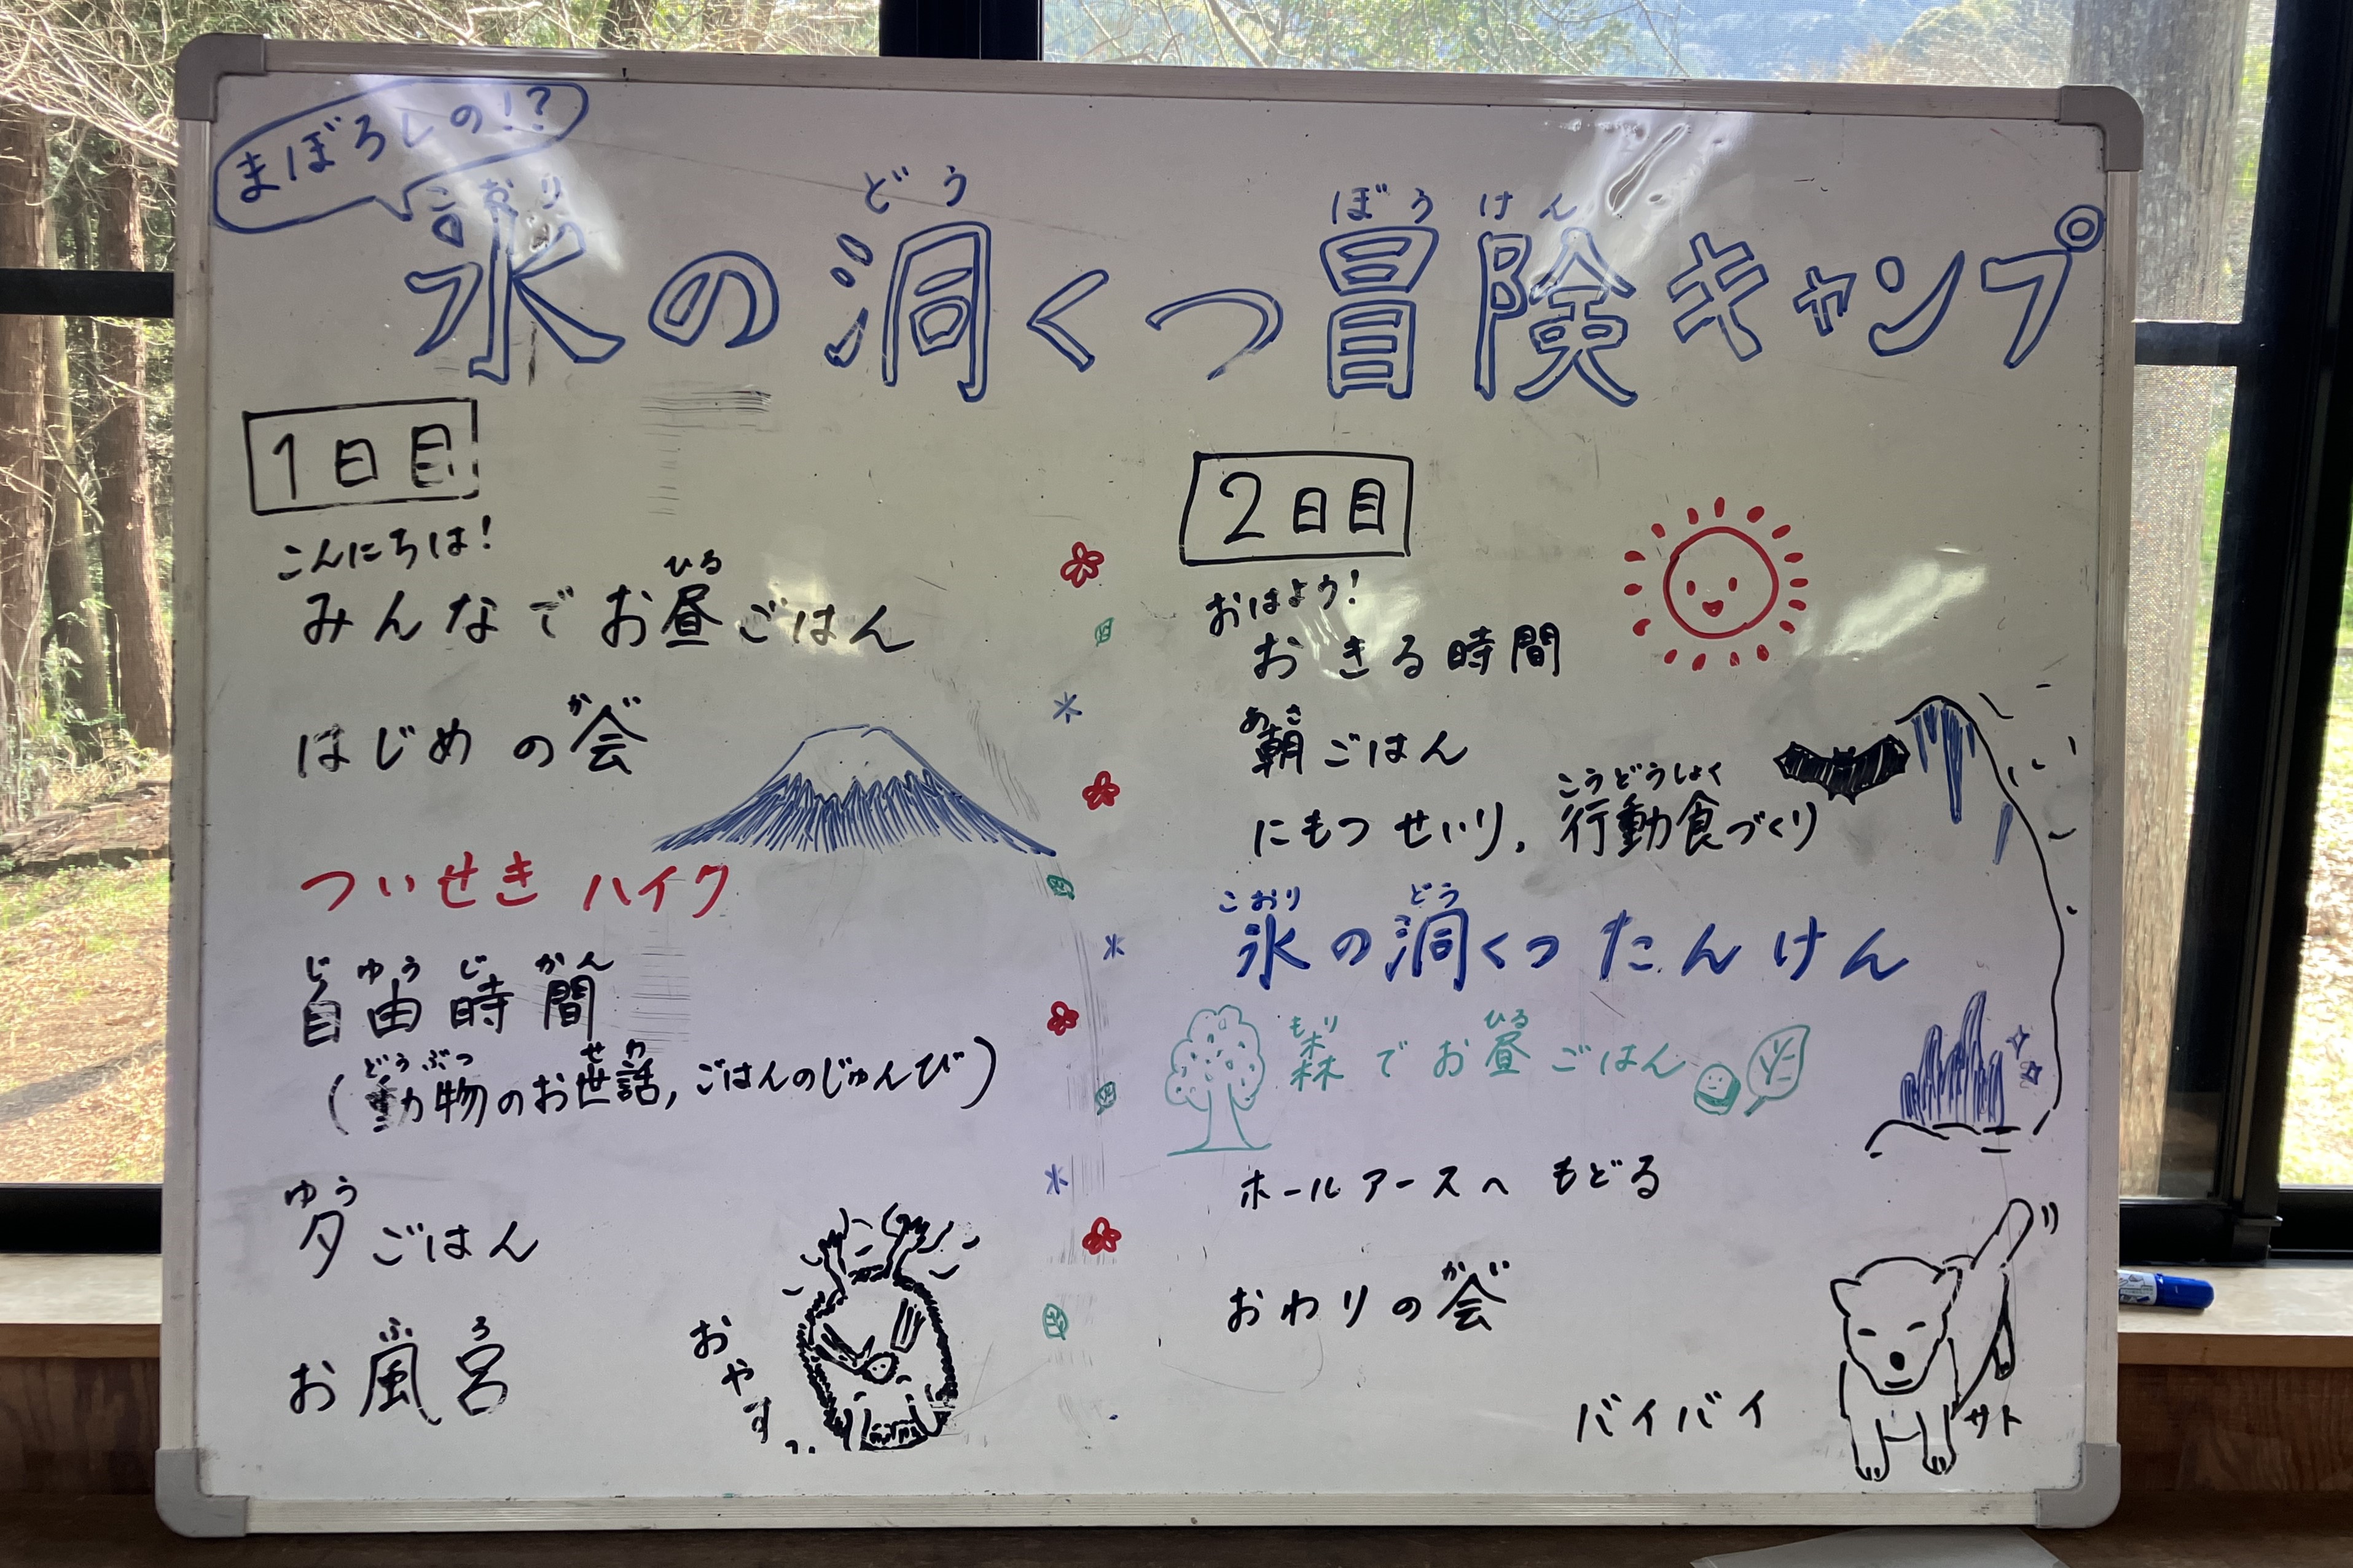 まぼろしの!?
こおり どう ぼうけん
氷の洞くつ冒険キャンプ
1日目
こんにちは!
ひる
みんなでお昼ごはん
かい
はじめの会
ついせきハイク
じゆうじかん
自由時間
どうぶつ せわ
(動物のお世話,ごはんのじゅんび)
ゆう
夕ごはん
ふろ
お風呂
おやす
2日目
おはよう!
おきる時間
あさ
朝ごはん
こうどうしょく
にもつせいり,行動食づくり
こおり どう
氷の洞くつたんけん
もり ひる
森でお昼ごはん
ホールアースへ もどる
かい
おわりの会
バイバイ
サト